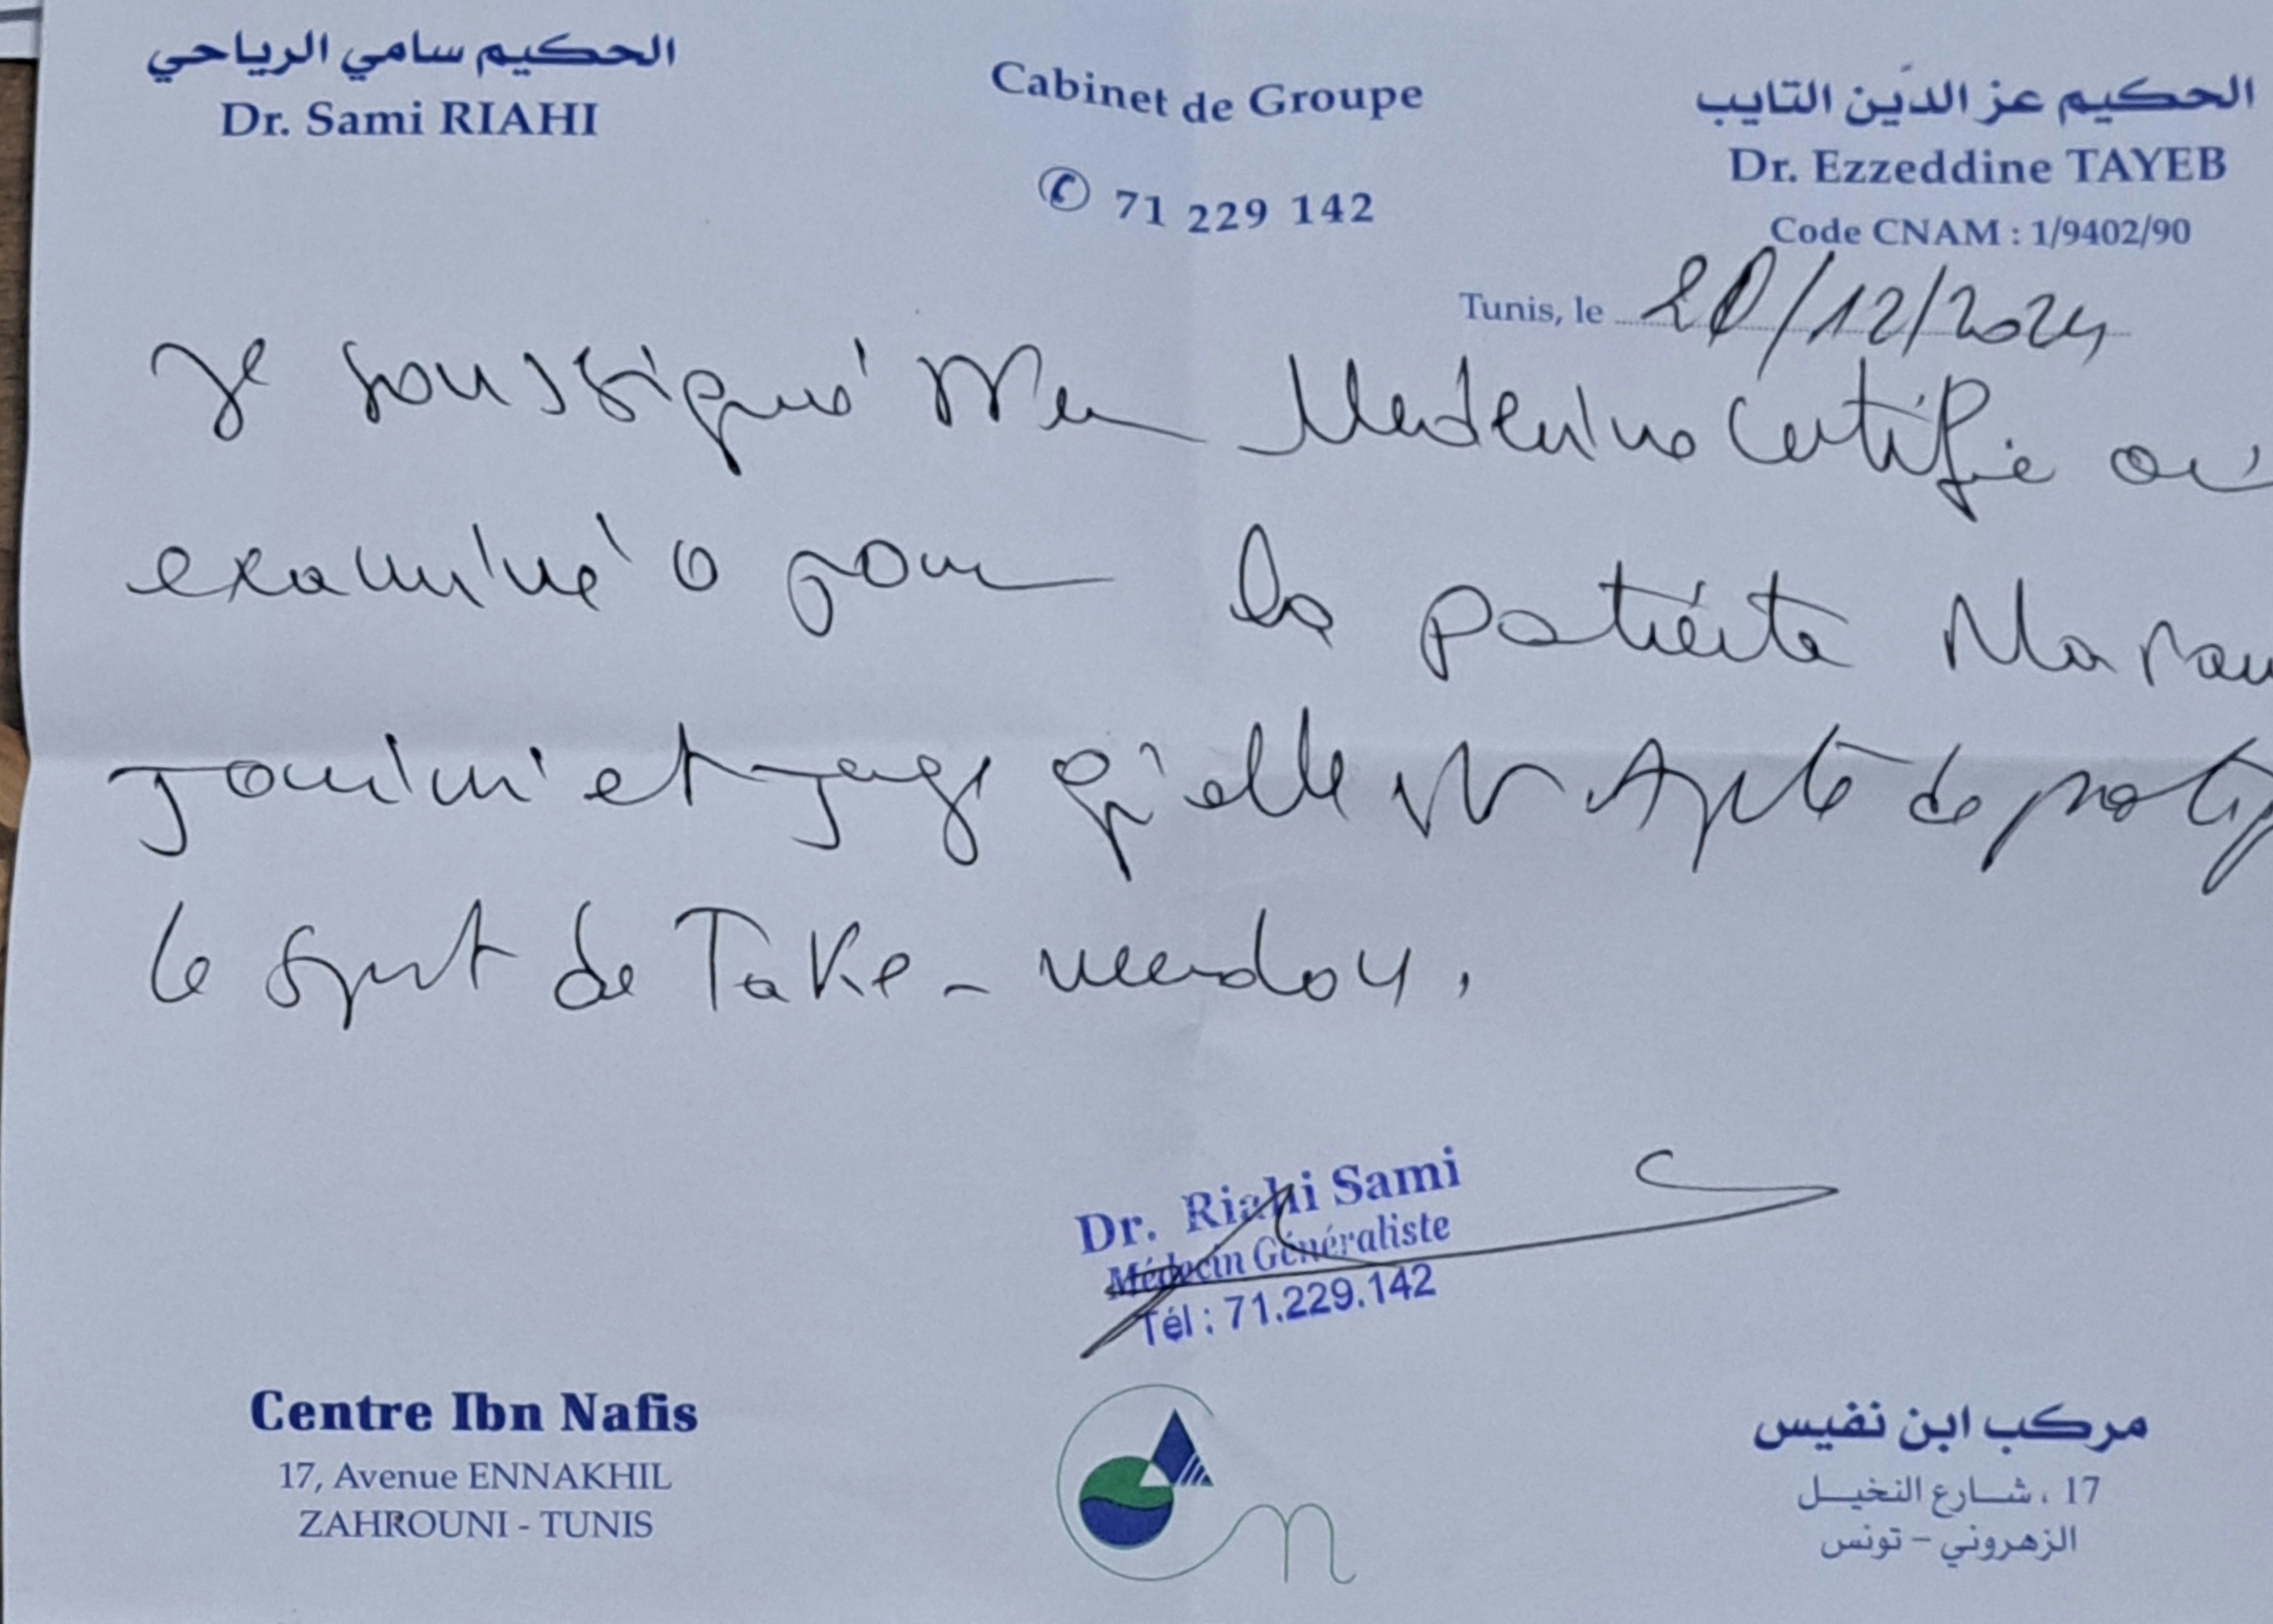 الحكيم سامي الرياحي
Dr. Sami RIAHI
Cabinet de Groupe
✆ 71 229 142
الحكيم عز الدّين التايب
Dr. Ezzeddine TAYEB
Code CNAM : 1/9402/90
Tunis, le 20/12/2024
Je soussigné certifie
examiné ce jour la patiente
et juge qu'elle est Apte de
le sport de Take-
Dr. Riahi Sami
Médecin Généraliste
Tél : 71.229.142
Centre Ibn Nafis
17, Avenue ENNAKHIL
ZAHROUNI - TUNIS
مركب ابن نفيس
17 ، شارع النخيل
الزهروني - تونس